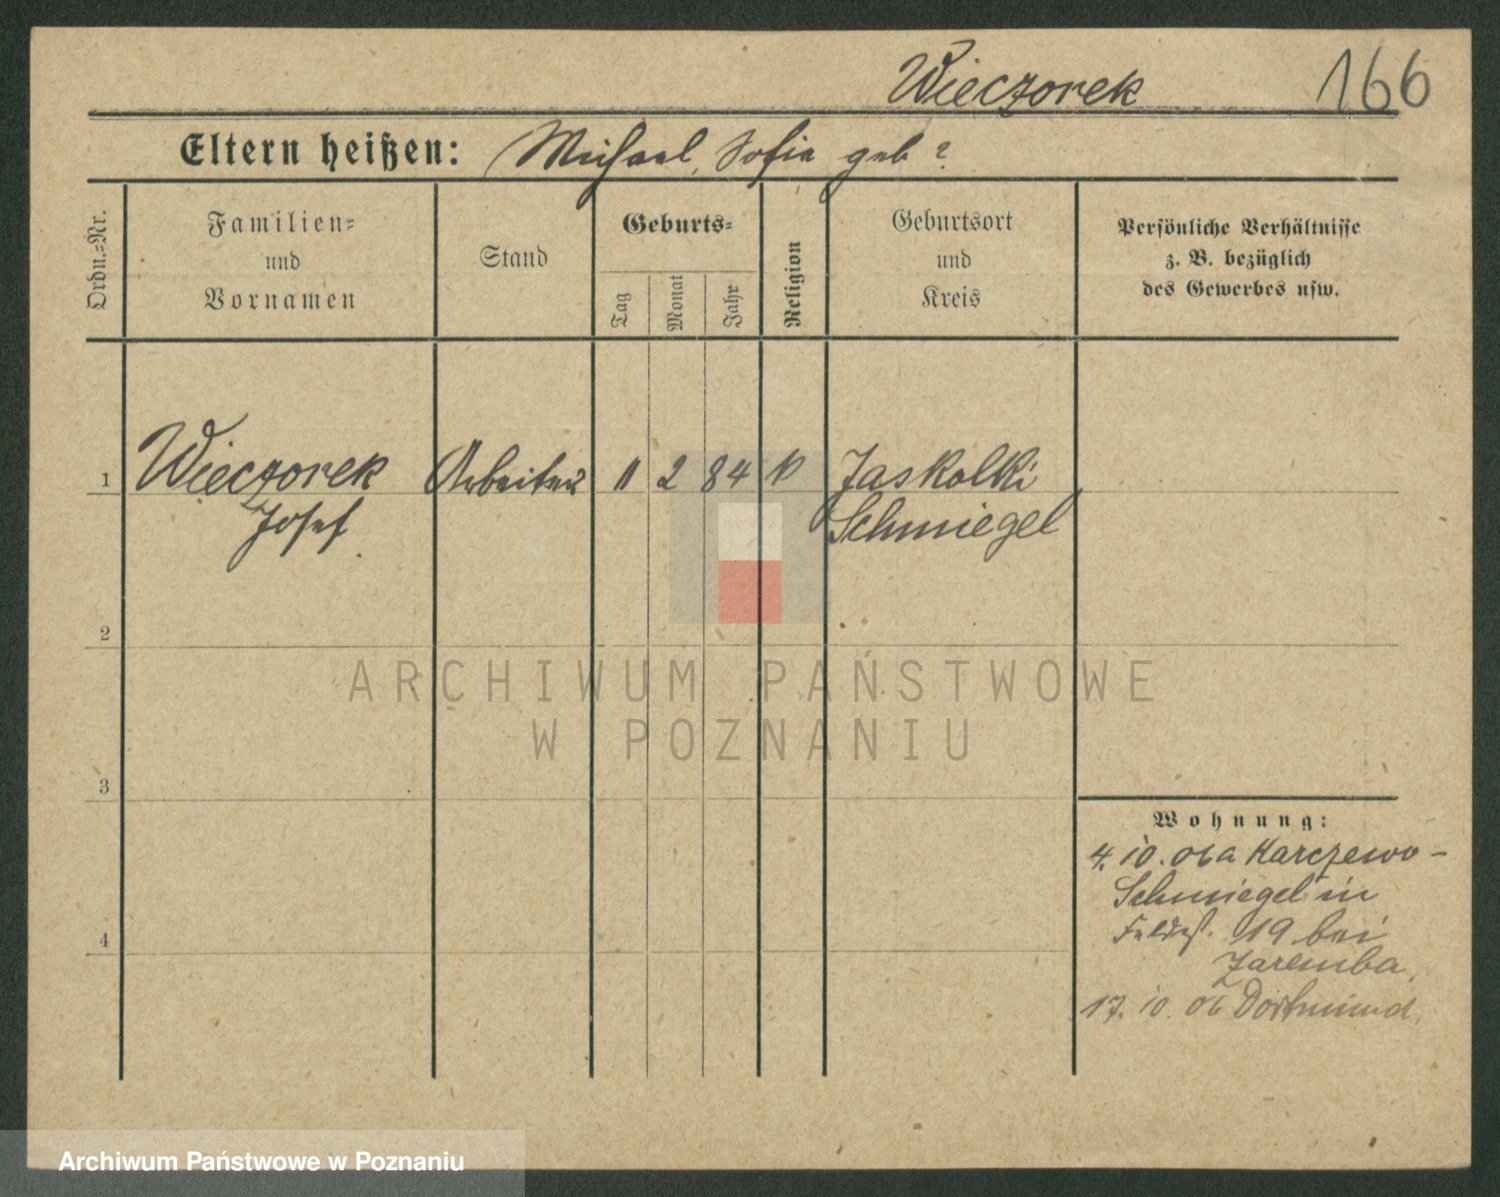 Wieczorek 166
Eltern heißen: Michael, Sofia geb ?
Ordn.=Nr.
Familien=
und
Vornamen
Stand
Geburts=
Tag
Monat
Jahr
Religion
Geburtsort
und
Kreis
Persönliche Verhältnisse
z. B. bezüglich
des Gewerbes usw.
1 Wieczorek Arbeiter 11 2 84 k Jaskolki
Josef Schmiegel
2
3
4
Wohnung:
4. 10. 06 a Karczewo-
Schmiegel in
19 bei
Zaremba.
17. 10. 06 Dortmund.
ARCHIWUM PAŃSTWOWE
W POZNANIU
Archiwum Państwowe w Poznaniu